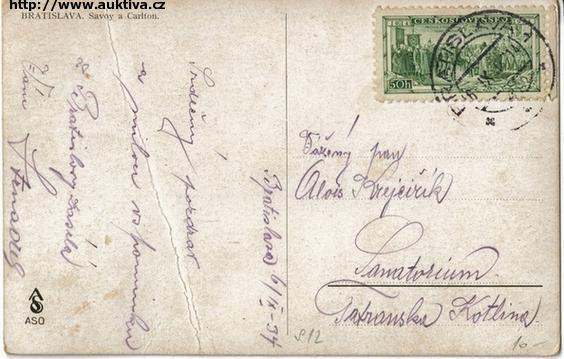 http://www.auktiva.cz
BRATISLAVA. Savoy a Carlton.
1914 ČESKOSLOVENSKO 1934
50h
BRATISLAVA
Srdečný pozdrav
a milou vzpomínku
z Bratislavy zasílá
Bratislava 6/IX-34
Vážený pan
Alois Krejčiřík
Sanatorium
Tatranska Kotlina
ASO
S12
10-